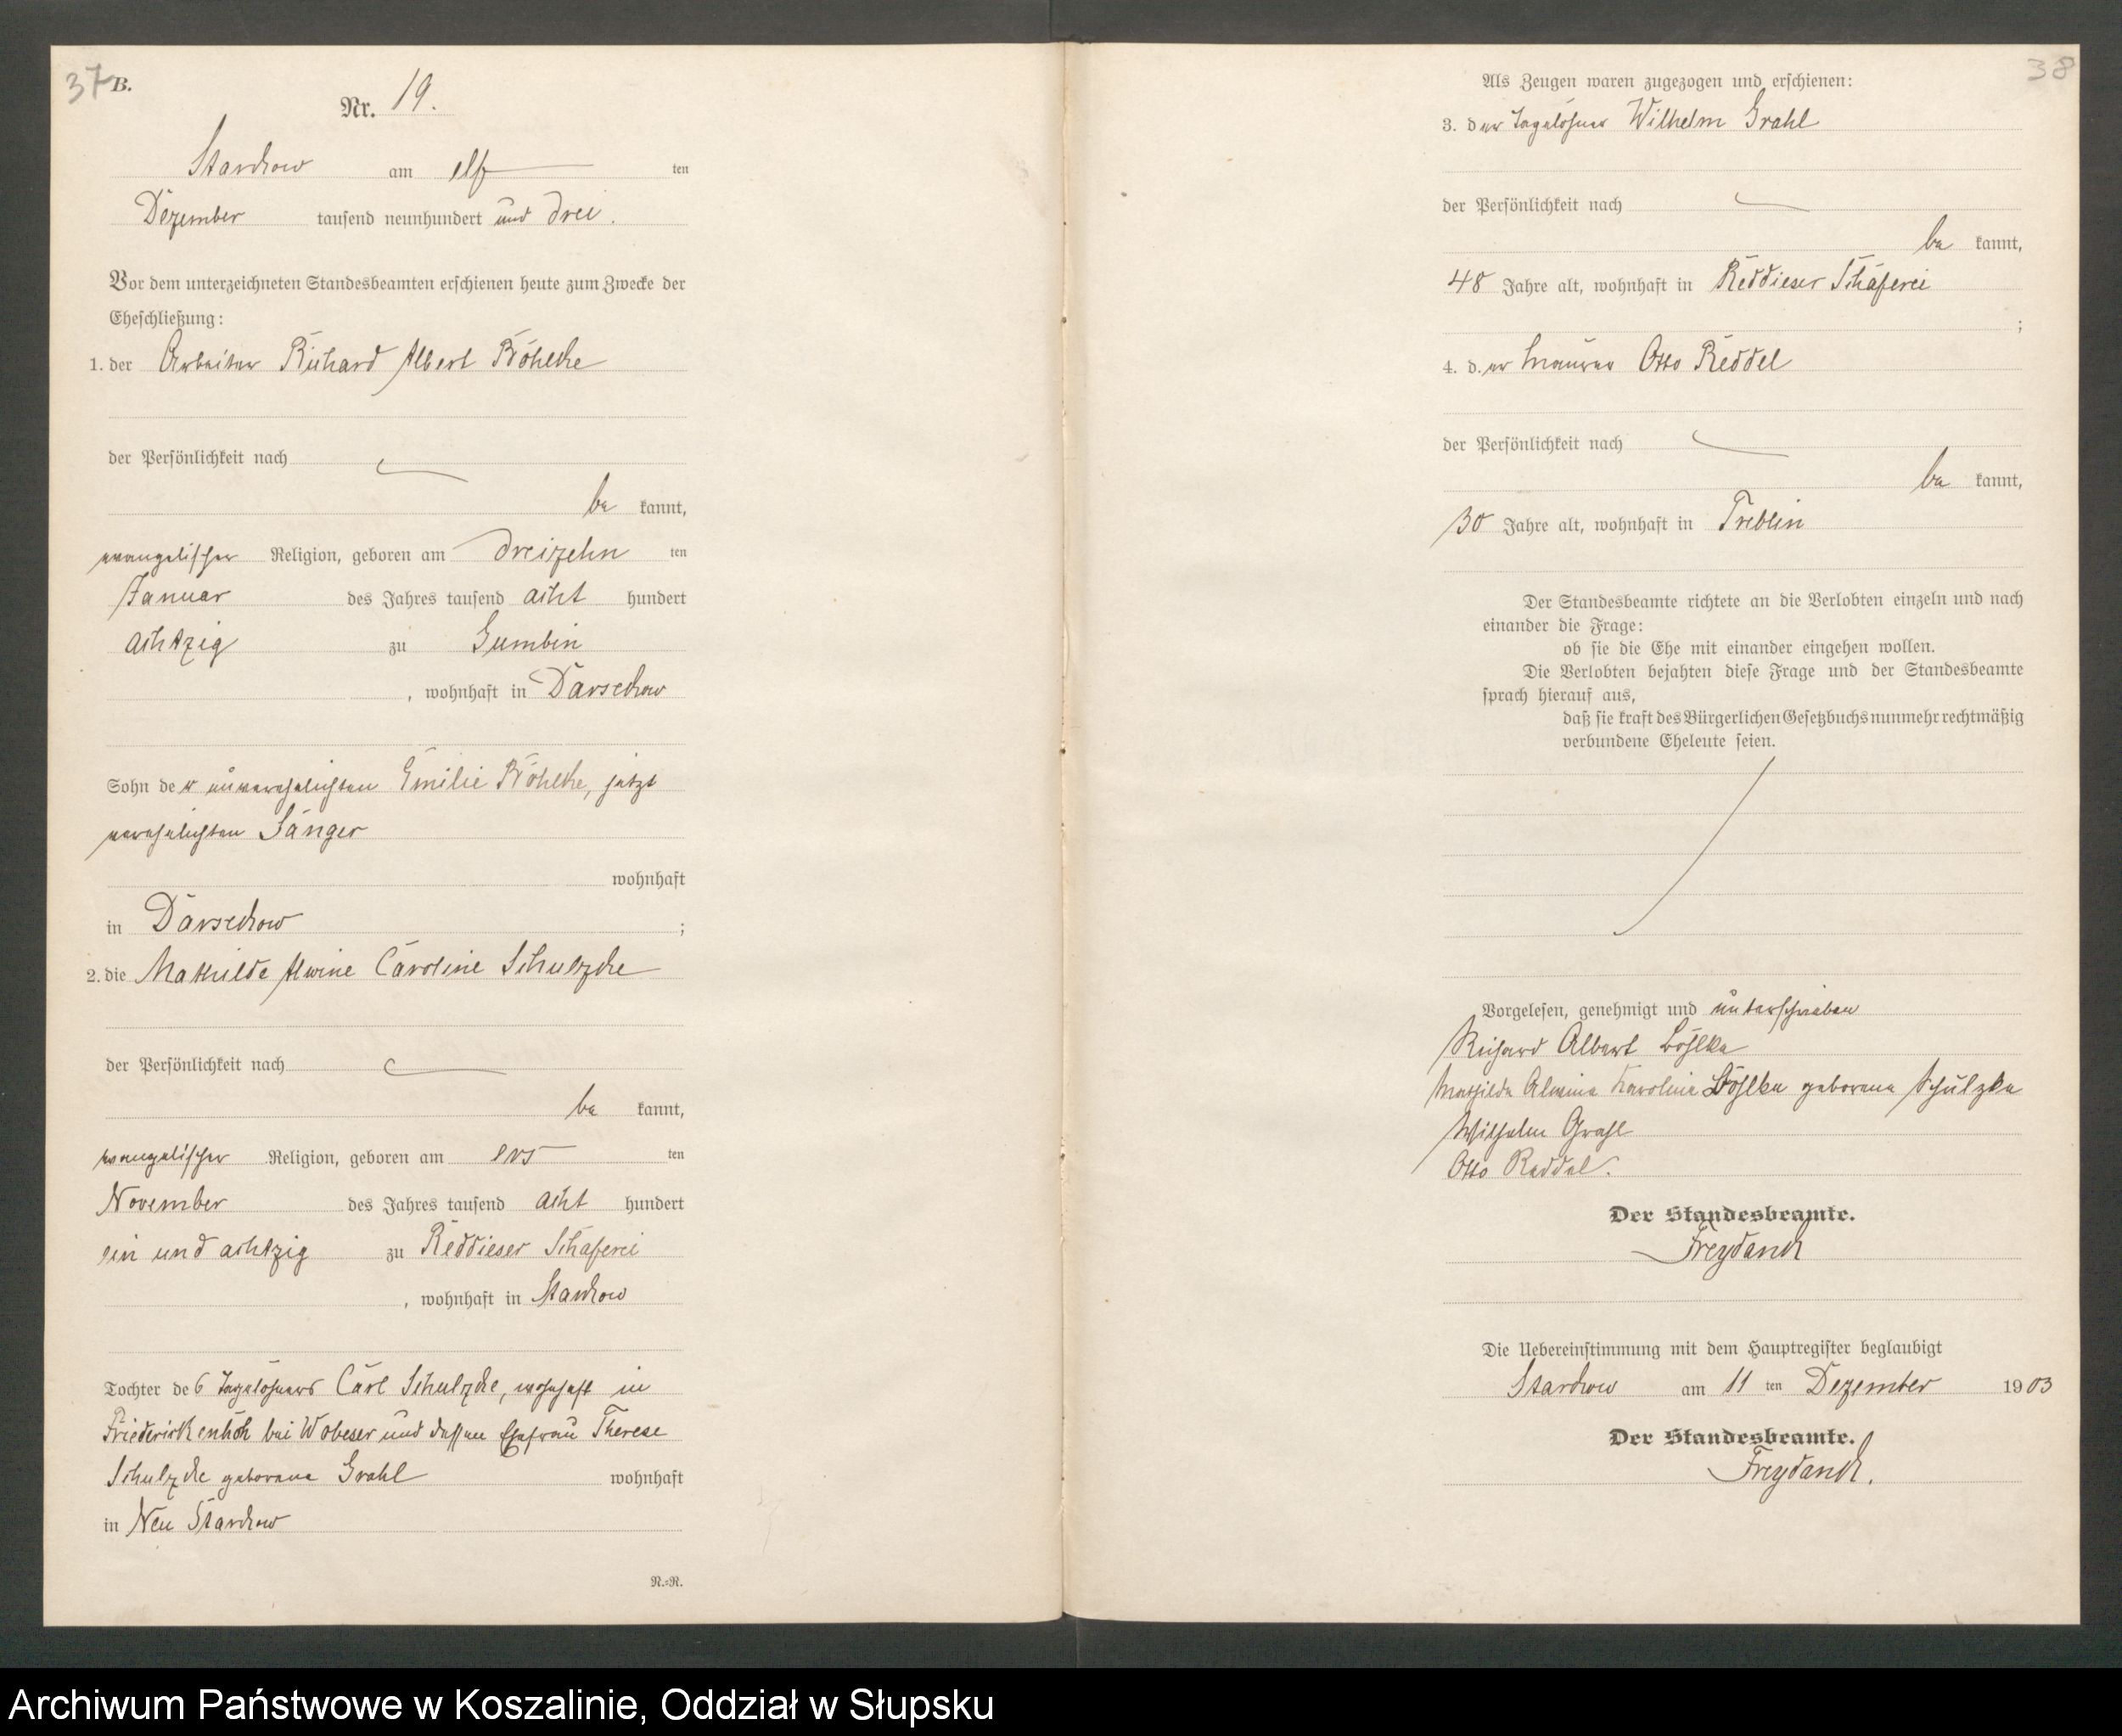 37 B.
Nr. 19.
Starckow am elf ten
Dezember tausend neunhundert und drei.
Vor dem unterzeichneten Standesbeamten erschienen heute zum Zwecke der
Eheschließung:
1. der Arbeiter Richard Albert Böhlcke
der Persönlichkeit nach
be kannt,
evangelischer Religion, geboren am dreizehn ten
Januar des Jahres tausend acht hundert
achtzig zu Gumbin
, wohnhaft in Darsechow
Sohn der unverehelichten Emilie Böhlcke, jetzt
verehelichten Sänger
wohnhaft
in Darsechow ;
2. die Mathilde Alwine Caroline Schulzcke
der Persönlichkeit nach
be kannt,
evangelischer Religion, geboren am ers ten
November des Jahres tausend acht hundert
ein und achtzig zu Reddieser Schäferei
, wohnhaft in Starckow
Tochter des Tagelöhners Carl Schulzcke, wohnhaft in
Friederickenhöh bei Wobeser und dessen Ehefrau Therese
Schulzcke geborene Grahl wohnhaft
in Neu Starckow
N.=N.
38
Als Zeugen waren zugezogen und erschienen:
3. der Tagelöhner Wilhelm Grahl
der Persönlichkeit nach
be kannt,
48 Jahre alt, wohnhaft in Reddieser Schäferei
;
4. d.er Maurer Otto Reddel
der Persönlichkeit nach
be kannt,
30 Jahre alt, wohnhaft in Treblin
Der Standesbeamte richtete an die Verlobten einzeln und nach
einander die Frage:
ob sie die Ehe mit einander eingehen wollen.
Die Verlobten bejahten diese Frage und der Standesbeamte
sprach hierauf aus,
daß sie kraft des Bürgerlichen Gesetzbuchs nunmehr rechtmäßig
verbundene Eheleute seien.
Vorgelesen, genehmigt und unterschrieben
Richard Albert Böhlke
Mathilde Alwine Karoline Böhlke geborene Schulzke
Wilhelm Grahl
Otto Reddel.
Der Standesbeamte.
Freydanck
Die Uebereinstimmung mit dem Hauptregister beglaubigt
Starckow am 11 ten Dezember 1903
Der Standesbeamte.
Freydanck.
Archiwum Państwowe w Koszalinie, Oddział w Słupsku